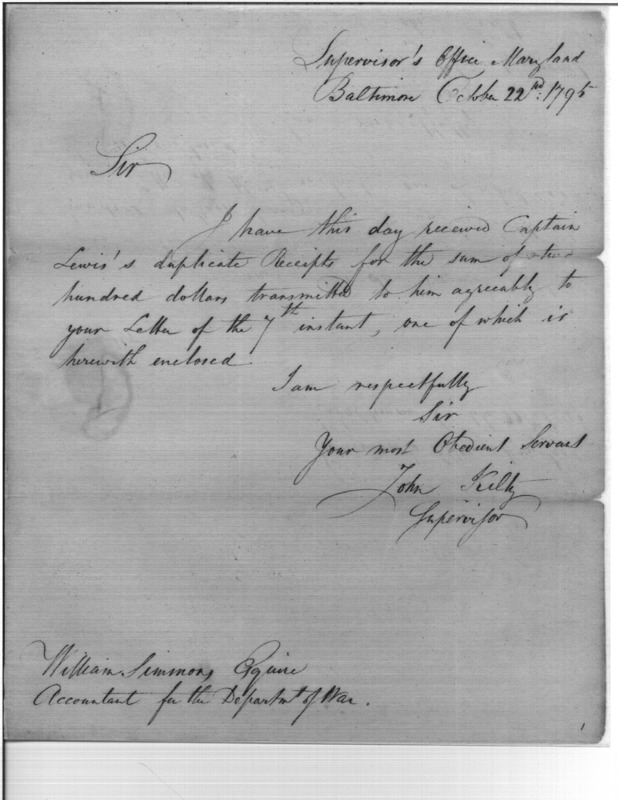 Supervisor's Office Maryland
Baltimore October 22nd: 1795
Sir
I have this day received Captain
Lewis's duplicate Receipts for the sum of two
hundred dollars transmitted to him agreeably to
your Letter of the 7th instant, one of which is
herewith enclosed
I am respectfully
Sir
Your most Obedient Servant
John Kilty
Supervisor
William Simmons Esquire
Accountant for the Departmt of War.